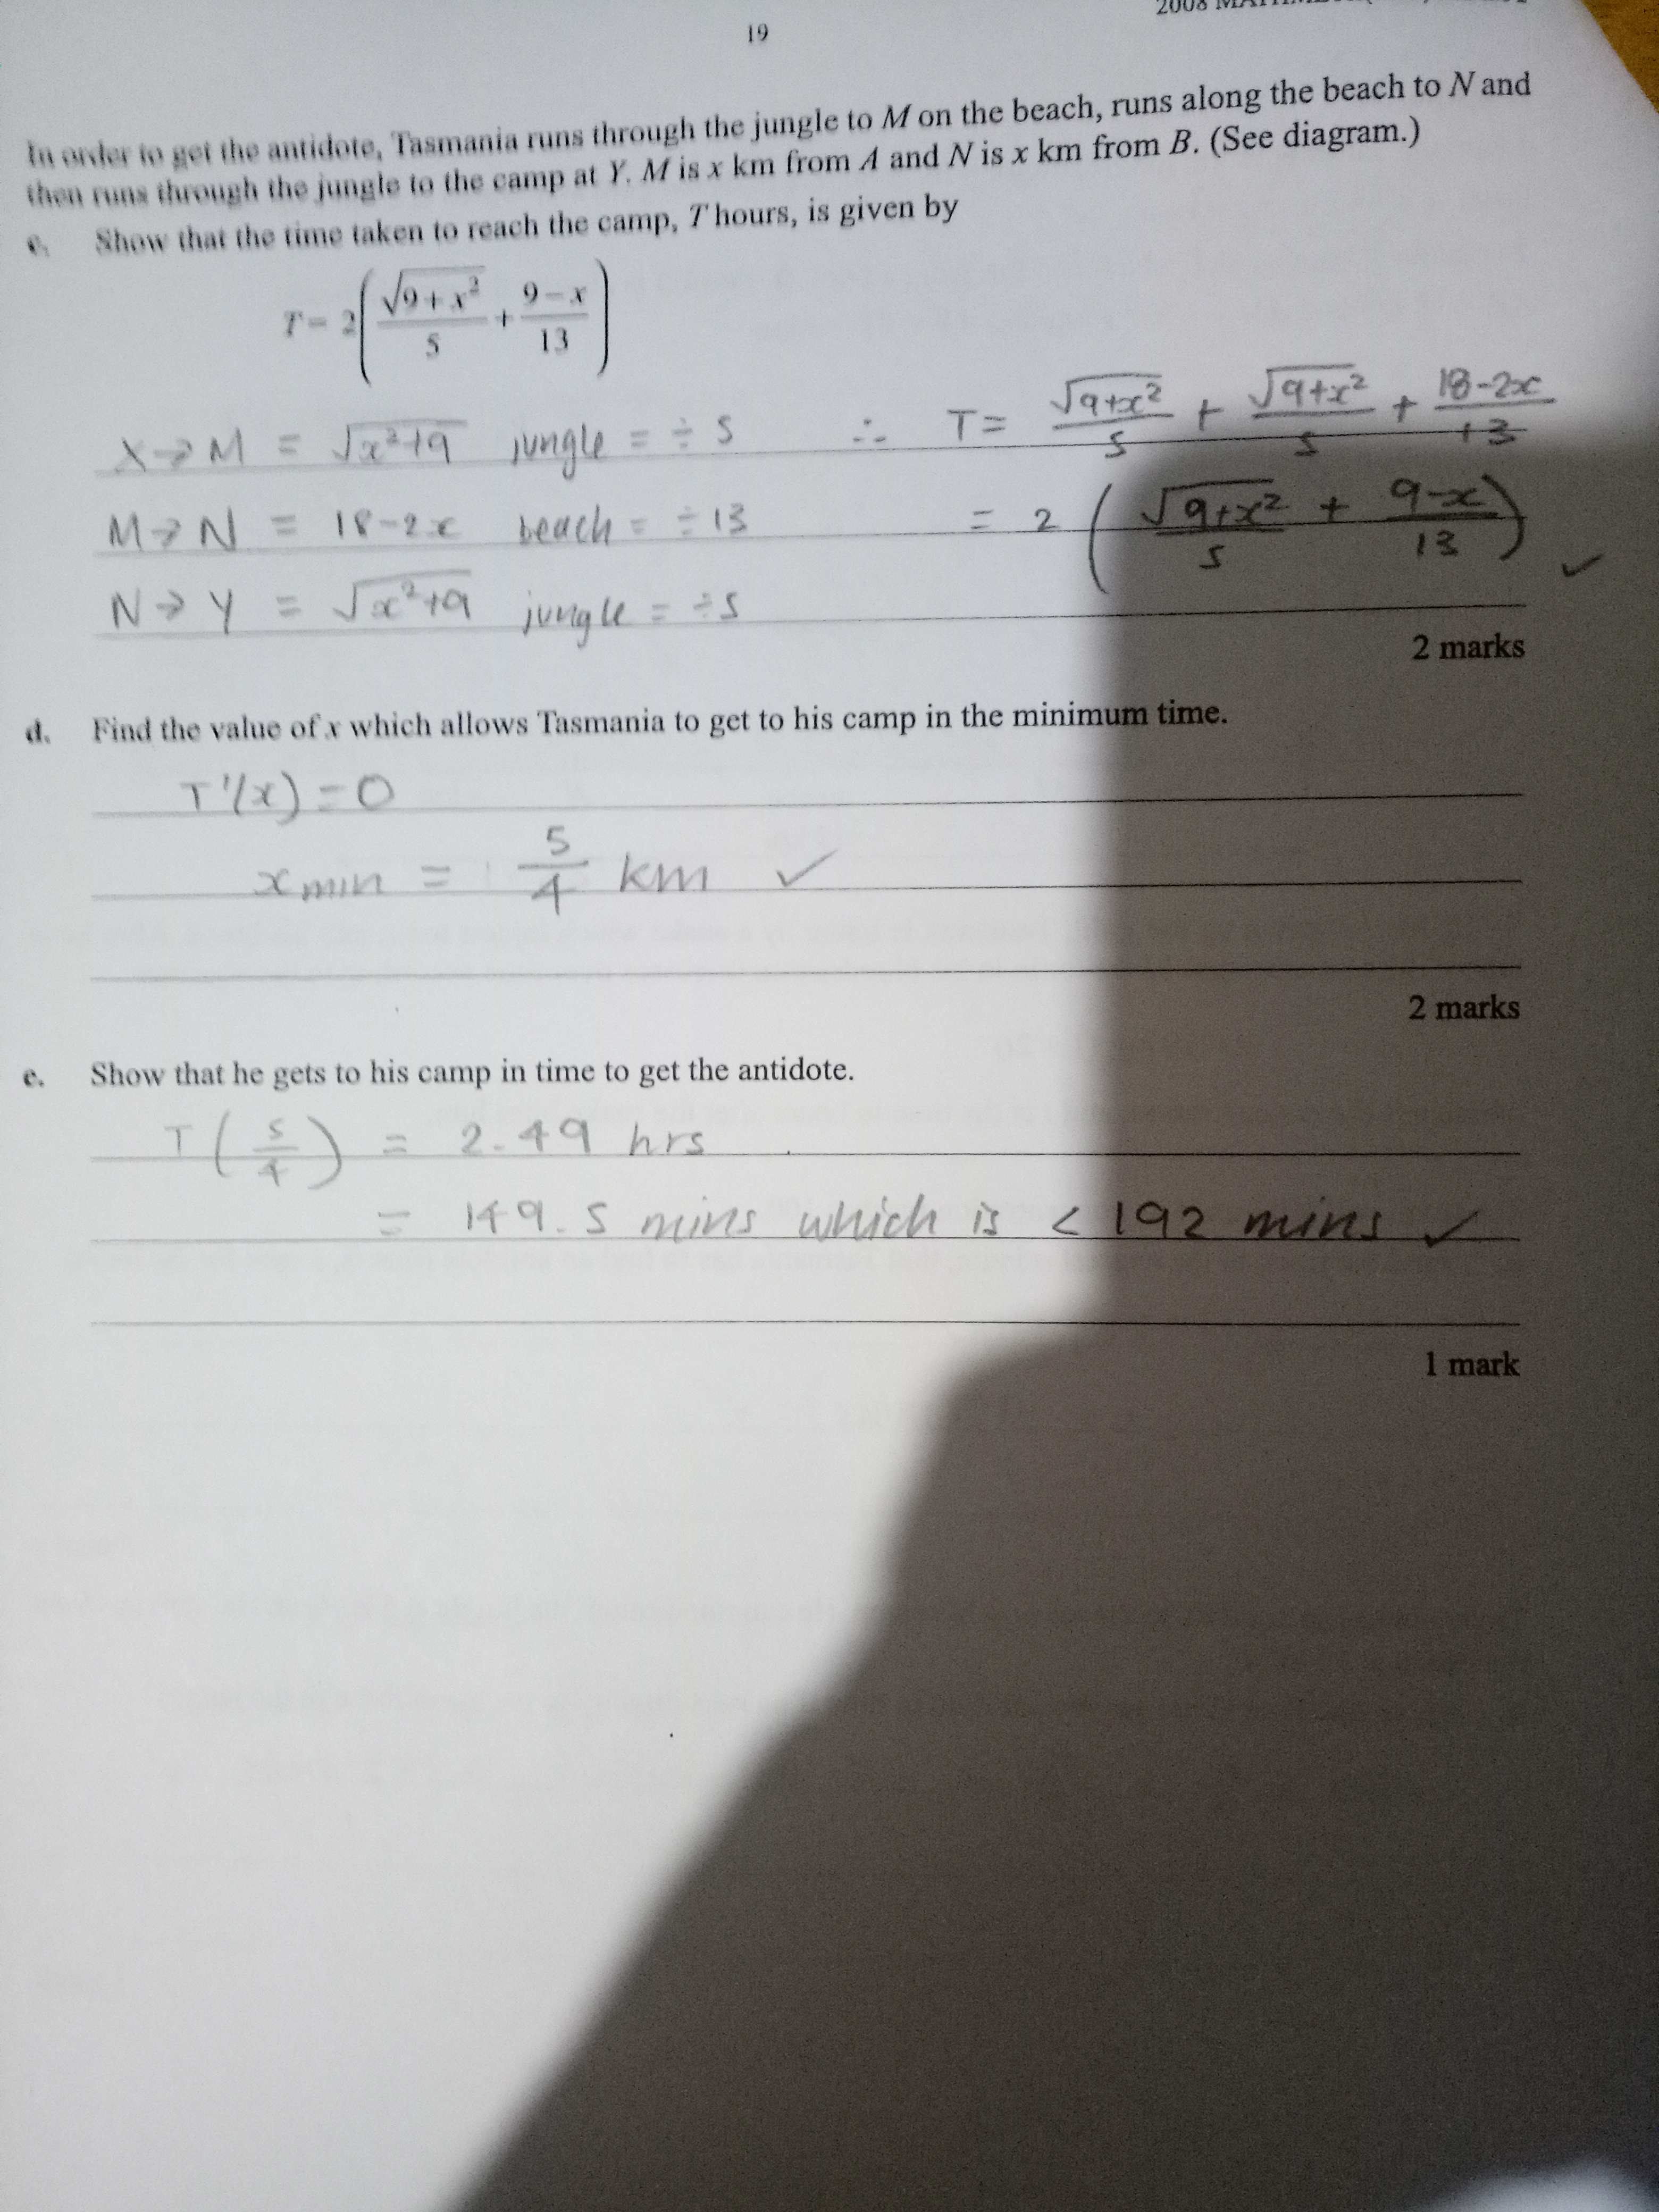 19
In order to get the antidote, Tasmania runs through the jungle to M on the beach, runs along the beach to N and
then runs through the jungle to the camp at Y. M is x km from A and N is x km from B. (See diagram.)
c. Show that the time taken to reach the camp, T hours, is given by
T = 2(√(9 + x²)/5 + (9 − x)/13)
X → M = √(x²+9) jungle = ÷ 5 ∴ T = √(9+x²)/5 + √(9+x²)/5 + (18-2x)/13
M → N = 18-2x beach = ÷ 13 = 2 (√(9+x²)/5 + (9-x)/13) ✓
N → Y = √(x²+9) jungle = ÷ 5
2 marks
d. Find the value of x which allows Tasmania to get to his camp in the minimum time.
T'(x) = 0
x min = 5/4 km ✓
2 marks
e. Show that he gets to his camp in time to get the antidote.
T (5/4) = 2.49 hrs
= 149.5 mins which is < 192 mins ✓
1 mark